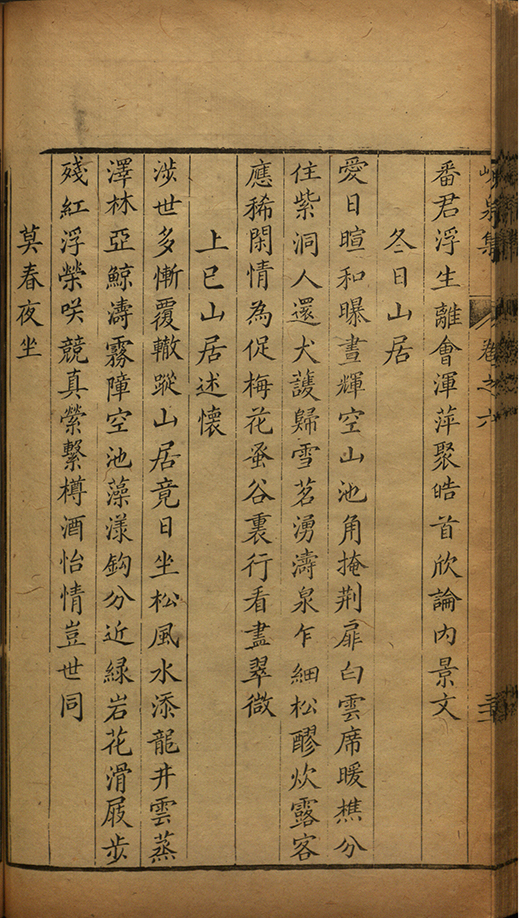 峴泉集 卷之六
番君浮生離會渾萍聚皓首欣論内景文
冬日山居
愛日暄和曝晝輝空山池角掩荆扉白雲席暖樵分
住紫洞人還犬護歸雪茗湧濤泉乍細松醪炊露客
應稀閑情為促梅花蚤谷裏行看盡翠微
上巳山居述懷
涉世多慚覆轍蹤山居竟日坐松風水添龍井雲蒸
澤林亞鯨濤霧障空池藻漾鈎分近緑岩花滑屐步
殘紅浮榮咲競真縈繫樽酒怡情豈世同
莫春夜坐